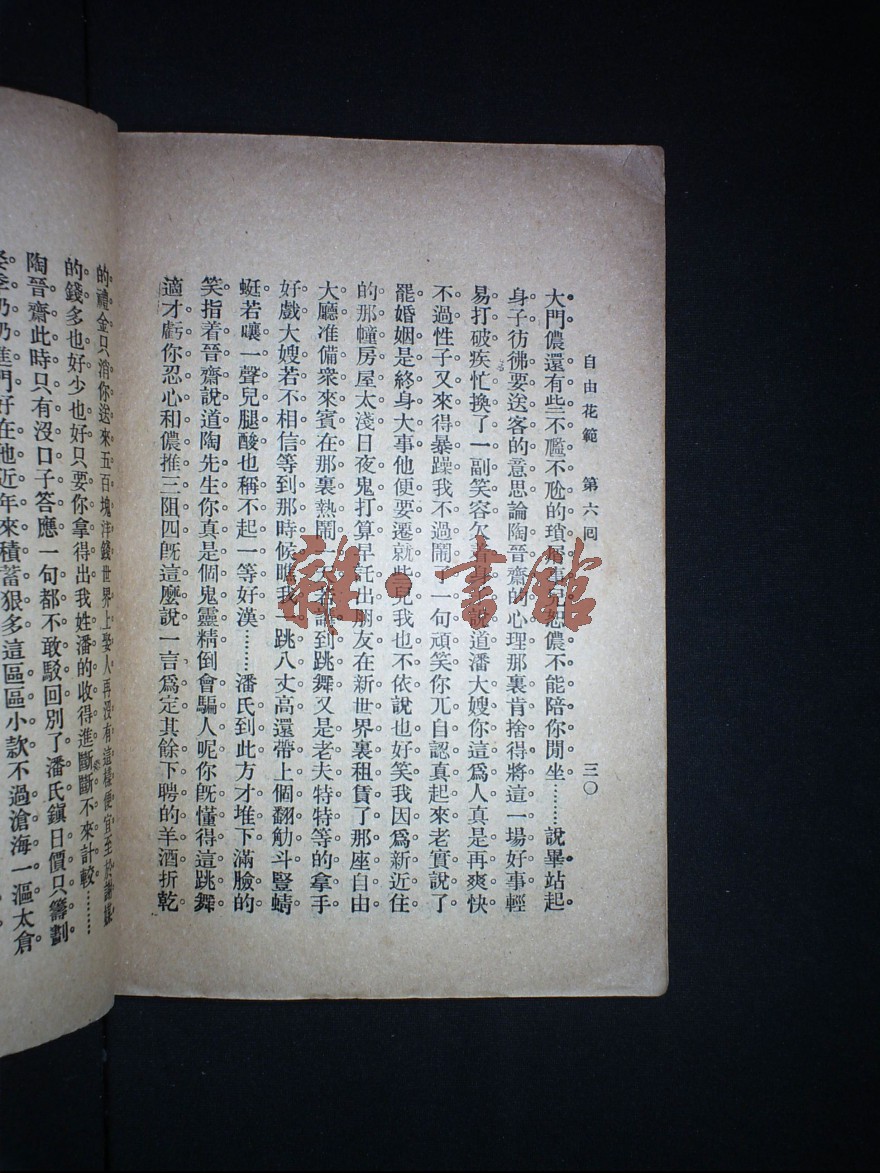 自由花範　第六回　三〇
大門儂還有些不尷不尬的瑣屑事兒恕儂不能陪你閒坐………說畢站起
身子彷彿要送客的意思論陶晉齋的心理那裏肯捨得將這一場好事輕
易打破疾忙換了一副笑容欠身說道潘大嫂你這爲人真是再爽快
不過性子又來得暴躁我不過鬧了一句頑笑你兀自認真起來老實說了
罷婚姻是終身大事他便要遷就些兒我也不依說也好笑我因爲新近住
的那幢房屋太淺日夜鬼打算早託出朋友在新世界裏租賃了那座自由
大廳准備衆來賓在那裏熱鬧一天若講到跳舞又是老夫特特等的拿手
好戲大嫂若不相信等到那時候瞧我一跳八丈高還帶上個翻觔斗豎蜻
蜓若嚷一聲兒腿酸也稱不起一等好漢………潘氏到此方才堆下滿臉的
笑指着晉齋說道陶先生你真是個鬼靈精倒會騙人呢你既懂得這跳舞
適才虧你忍心和儂推三阻四既這麼說一言爲定其餘下聘的羊酒折乾
的禮金只消你送來五百塊洋錢世界上娶人再沒有這樣便宜至於謝媒
的錢多也好少也好只要你拿得出我姓潘的收得進斷斷不來計較………
陶晉齋此時只有沒口子答應一句都不敢駁回別了潘氏鎭日價只籌劃
奶奶進門好在他近年來積蓄狠多這區區小款不過滄海一漚太倉
雜·書館